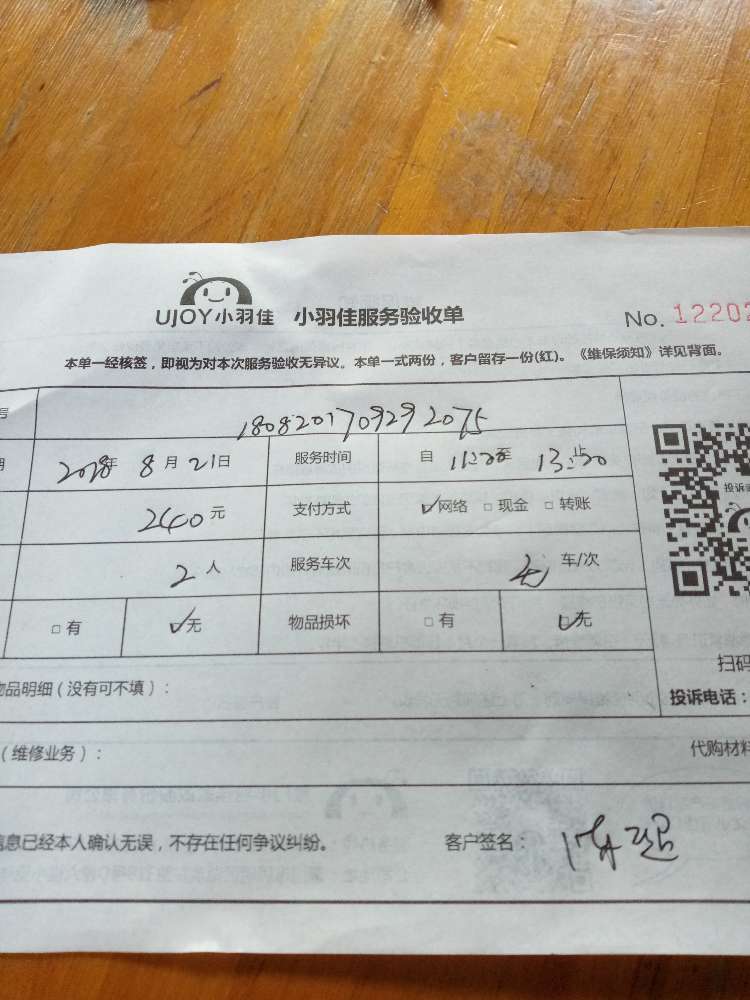 UJOY小羽佳 小羽佳服务验收单 No. 12202
本单一经核签，即视为对本次服务验收无异议。本单一式两份，客户留存一份(红)。《维保须知》详见背面。
号 1808201709292075
期 2018年 8月 21日 服务时间 自 11:20至 13:20止
2400元 支付方式 ☑网络 □现金 □转账
投诉
2人 服务车次 车/次
□有 ☑无 物品损坏 □有 ☑无
扫码
物品明细（没有可不填）：
投诉电话：
（维修业务）： 代购材料
信息已经本人确认无误，不存在任何争议纠纷。 客户签名：